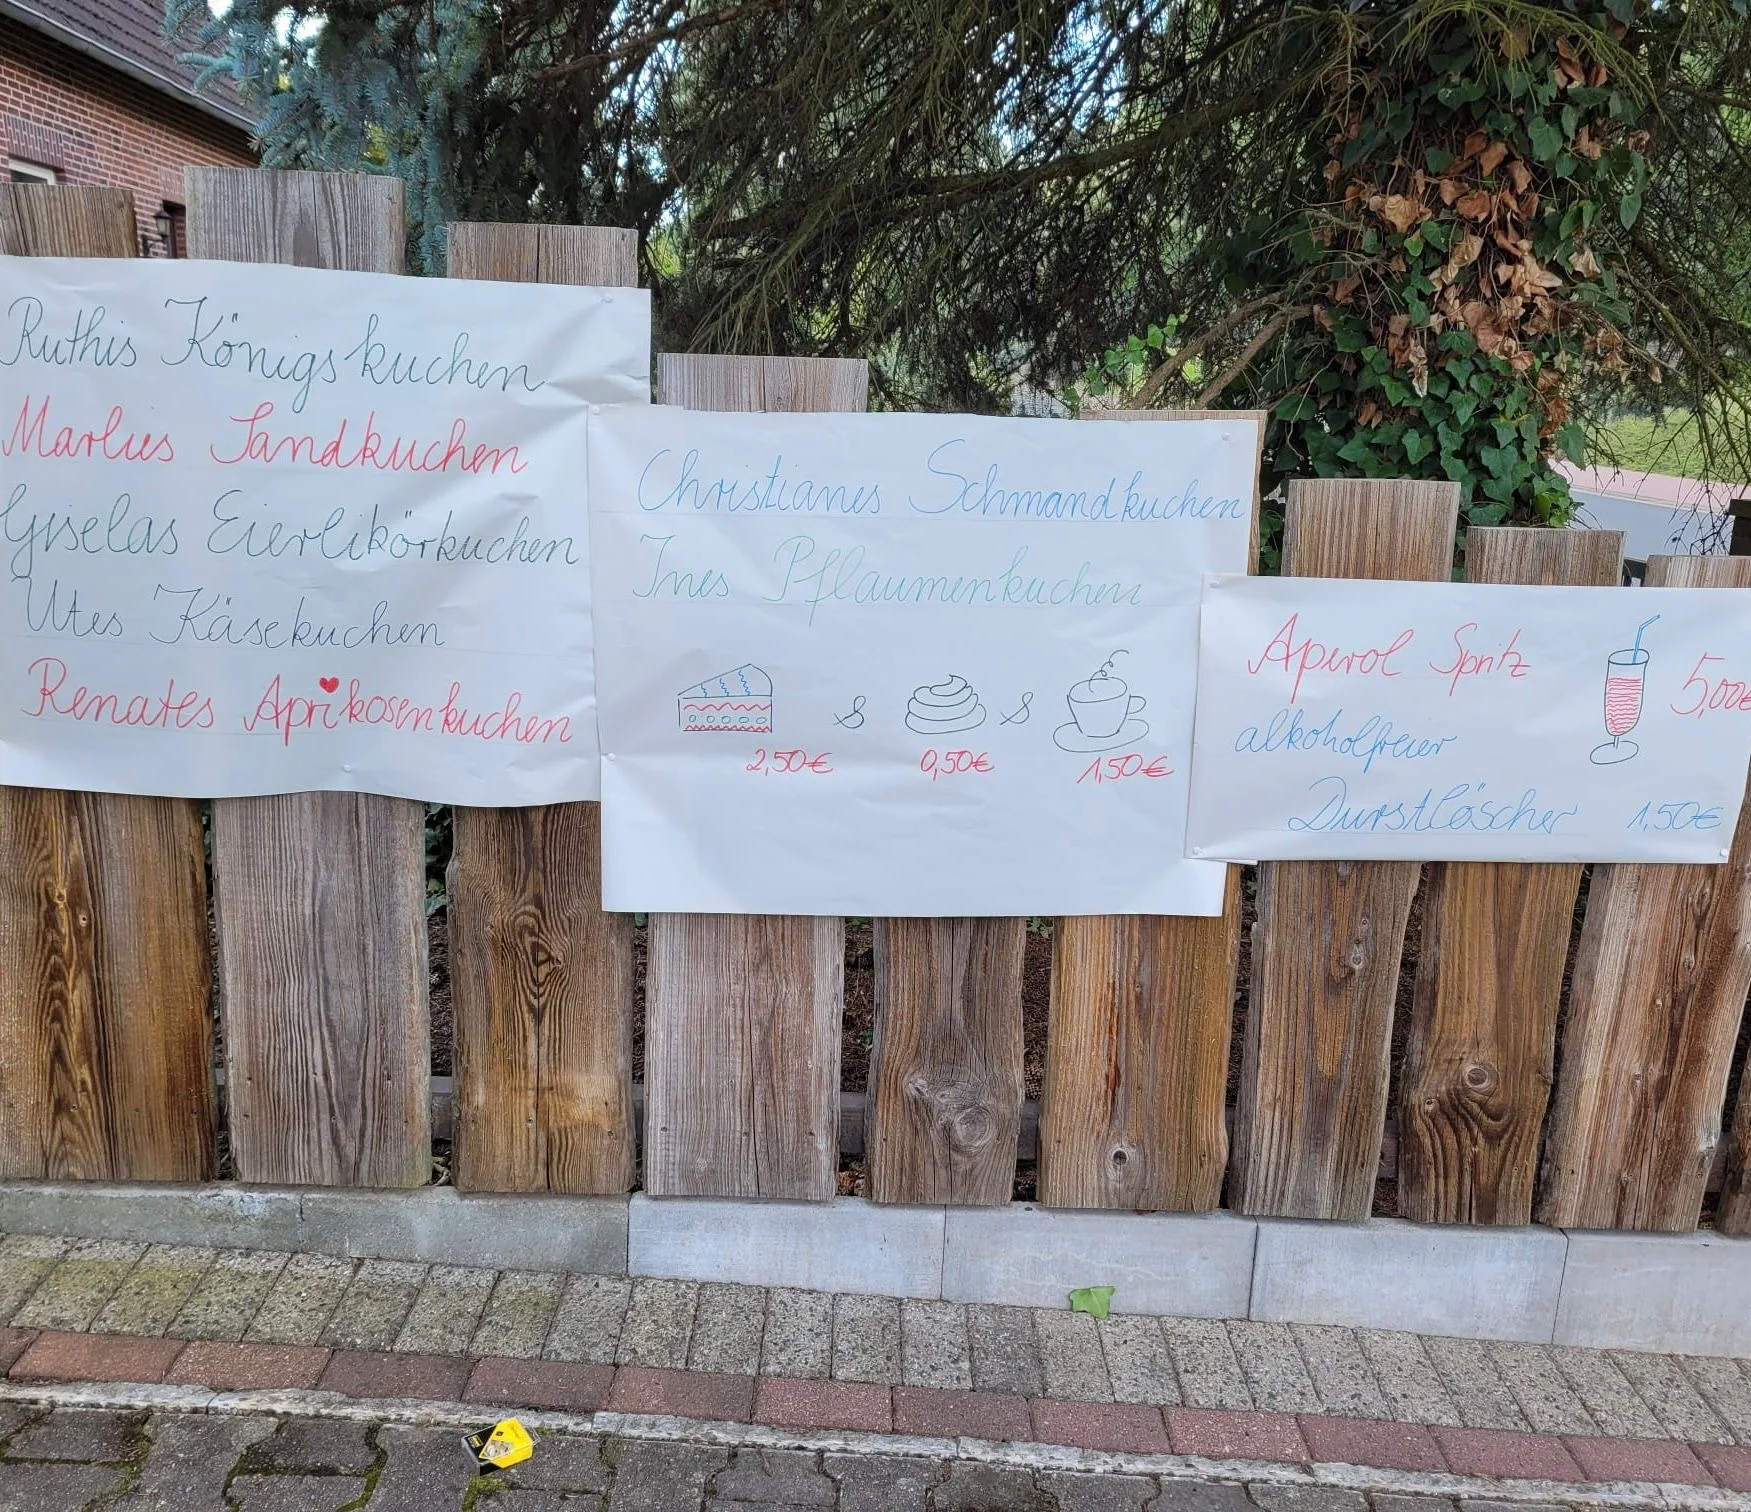 Ruthis Königskuchen
Marlies Sandkuchen
Giselas Eierlikörkuchen
Utes Käsekuchen
Renates Aprikosenkuchen
Christianes Schmandkuchen
Ines Pflaumenkuchen
& &
2,50€ 0,50€ 1,50€
Aperol Spritz 5,00€
alkoholfreier
Durstlöscher 1,50€